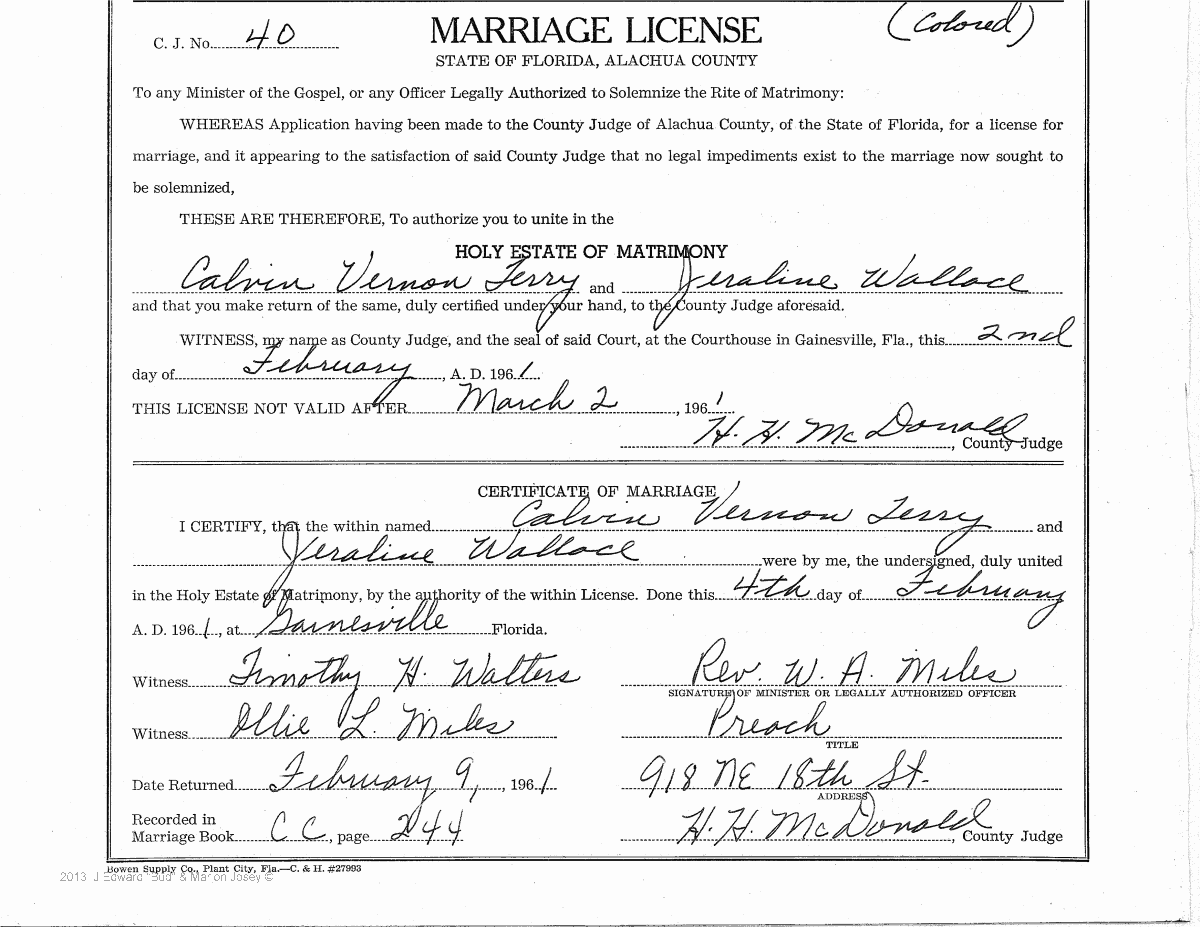 C. J. No. 40
MARRIAGE LICENSE
(Colored)
STATE OF FLORIDA, ALACHUA COUNTY
To any Minister of the Gospel, or any Officer Legally Authorized to Solemnize the Rite of Matrimony:
WHEREAS Application having been made to the County Judge of Alachua County, of the State of Florida, for a license for
marriage, and it appearing to the satisfaction of said County Judge that no legal impediments exist to the marriage now sought to
be solemnized,
THESE ARE THEREFORE, To authorize you to unite in the
HOLY ESTATE OF MATRIMONY
Calvin Vernon Terry and Jeraline Wallace
and that you make return of the same, duly certified under your hand, to the County Judge aforesaid.
WITNESS, my name as County Judge, and the seal of said Court, at the Courthouse in Gainesville, Fla., this 2nd
day of February, A. D. 1961.
THIS LICENSE NOT VALID AFTER March 2, 1961
H. H. McDonald, County Judge
CERTIFICATE OF MARRIAGE
I CERTIFY, that the within named Calvin Vernon Terry and
Jeraline Wallace were by me, the undersigned, duly united
in the Holy Estate of Matrimony, by the authority of the within License. Done this 4th day of February
A. D. 1961, at Gainesville Florida.
Witness Timothy H. Walters
Rev. W. A. Miles
SIGNATURE OF MINISTER OR LEGALLY AUTHORIZED OFFICER
Witness Ollie L. Miles
Preach
TITLE
Date Returned February 9, 1961
918 NE 18th St.
ADDRESS
Recorded in
Marriage Book CC, page 244
H. H. McDonald, County Judge
Bowen Supply Co., Plant City, Fla.—C. & H. #27993
2013 J Edward "Bud" & Marion Josey ©